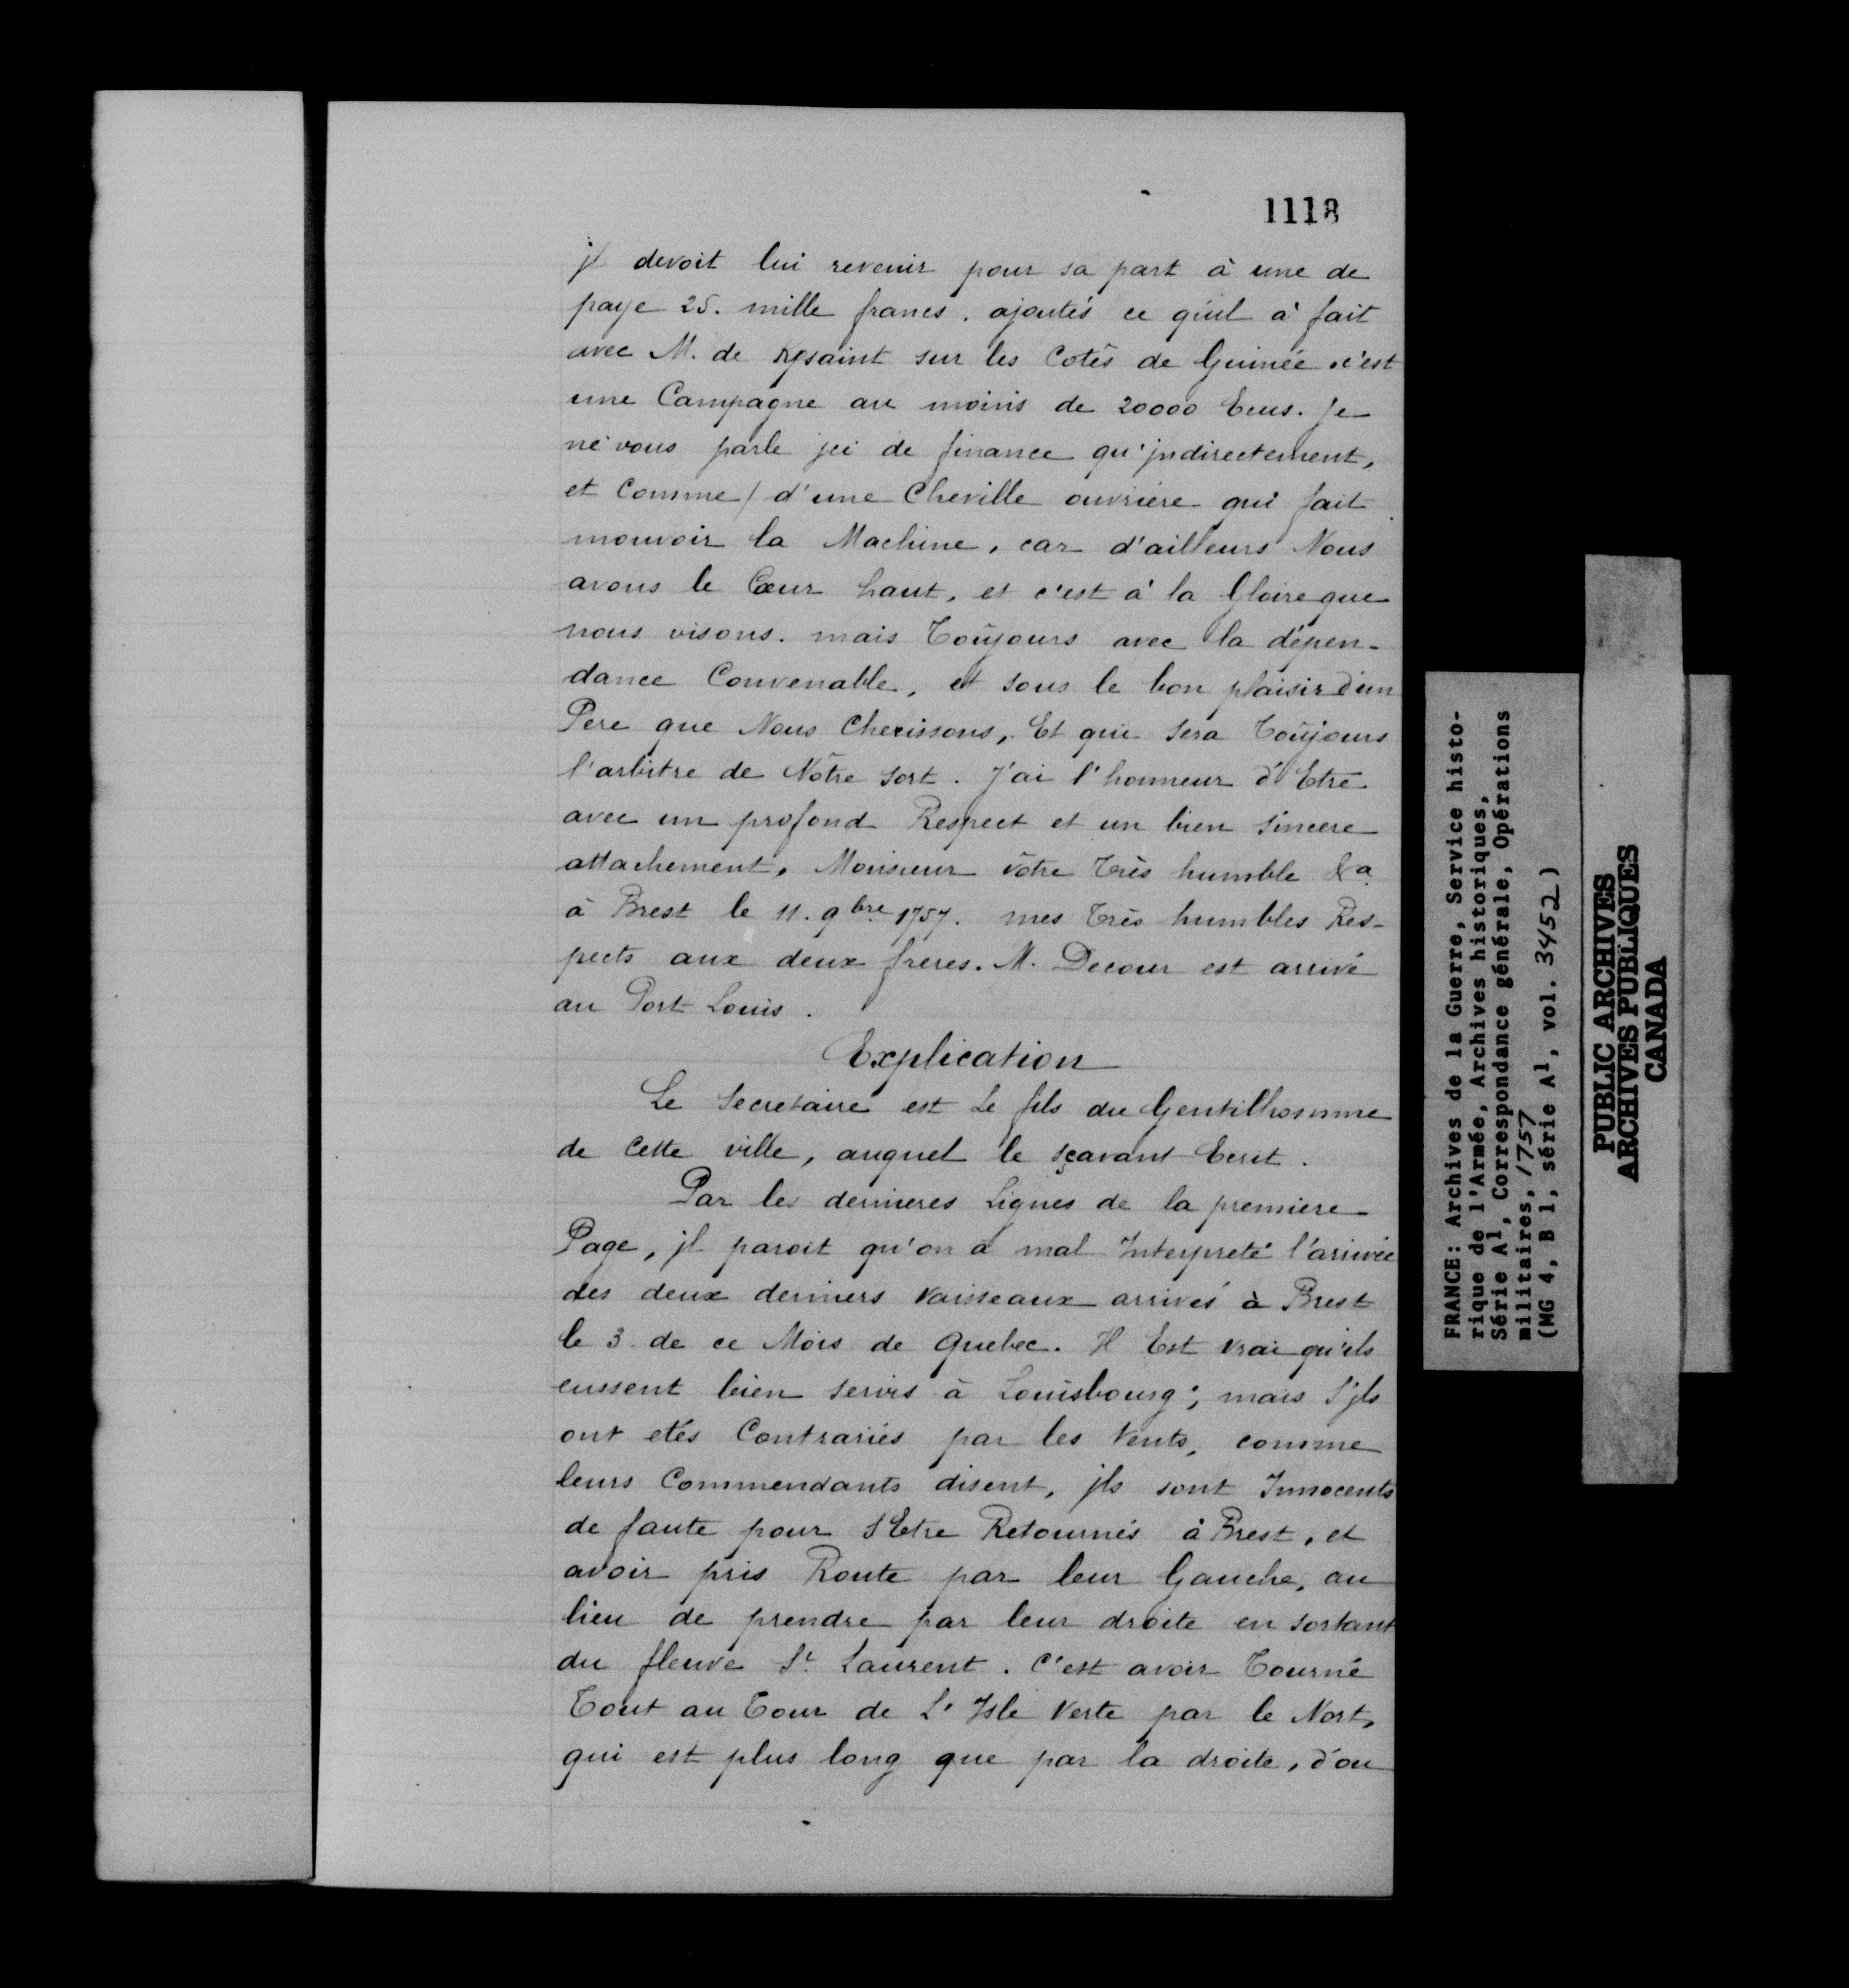 1118
jl devoit lui revenir pour sa part à une de
paye 25. mille francs. ajoutés ce qu'il à fait
avec M. de Kpsaint sur les Cotés de Guinée. c'est
une Campagne au moins de 20000 Ecus. Je
ne vous parle jci de finance qu'jndirectement,
et Comme / d'une Cheville ouvriere qui fait
mouvoir la Machine, car d'ailleurs Nous
avons le Cœur haut, et c'est à la Gloire que
nous visons. mais Toûjours avec la dépen-
dance Convenable, et sous le bon plaisir d'un
Pere que Nous Cherissons, Et qui Sera Toûjours
l'arbitre de Nôtre Sort. J'ai l'honneur d'Etre
avec un profond Respect et un bien Sincere
attachement, Monsieur vôtre très humble &a
à Brest le 11. 9bre 1757. mes très humbles Res-
pects aux deux freres. M. Decour est arrivé
au Port-Louis.
Explication
Le Secretaire est Le fils du Gentilhomme
de Cette ville, auquel le sçavant Ecrit.
Par les dernieres Lignes de la premiere
Page, jl paroit qu'on à mal Interpreté l'arivée
des deux derniers Vaisseaux arrivés à Brest
le 3. de ce Mois de Quebec. Il Est Vrai qu'ils
eussent bien servis à Louisbourg; mais S'jls
ont etés Contrariés par les Vents, comme
leurs Commendants disent, jls sont Innocents
de faute pour S'Etre Retournés à Brest, et
avoir pris Route par leur Gauche, au
lieu de prendre par leur droite en sortant
du fleuve St. Laurent. C'est avoir Tourné
Tout au Tour de L'Isle Verte par le Nort,
qui est plus long que par la droite, d'ou
FRANCE: Archives de la Guerre, Service histo-
rique de l'Armée, Archives historiques,
Série A1, Correspondance générale, Opérations
militaires, 1757
(MG 4, B 1, série A1, vol. 3452)
PUBLIC ARCHIVES
ARCHIVES PUBLIQUES
CANADA